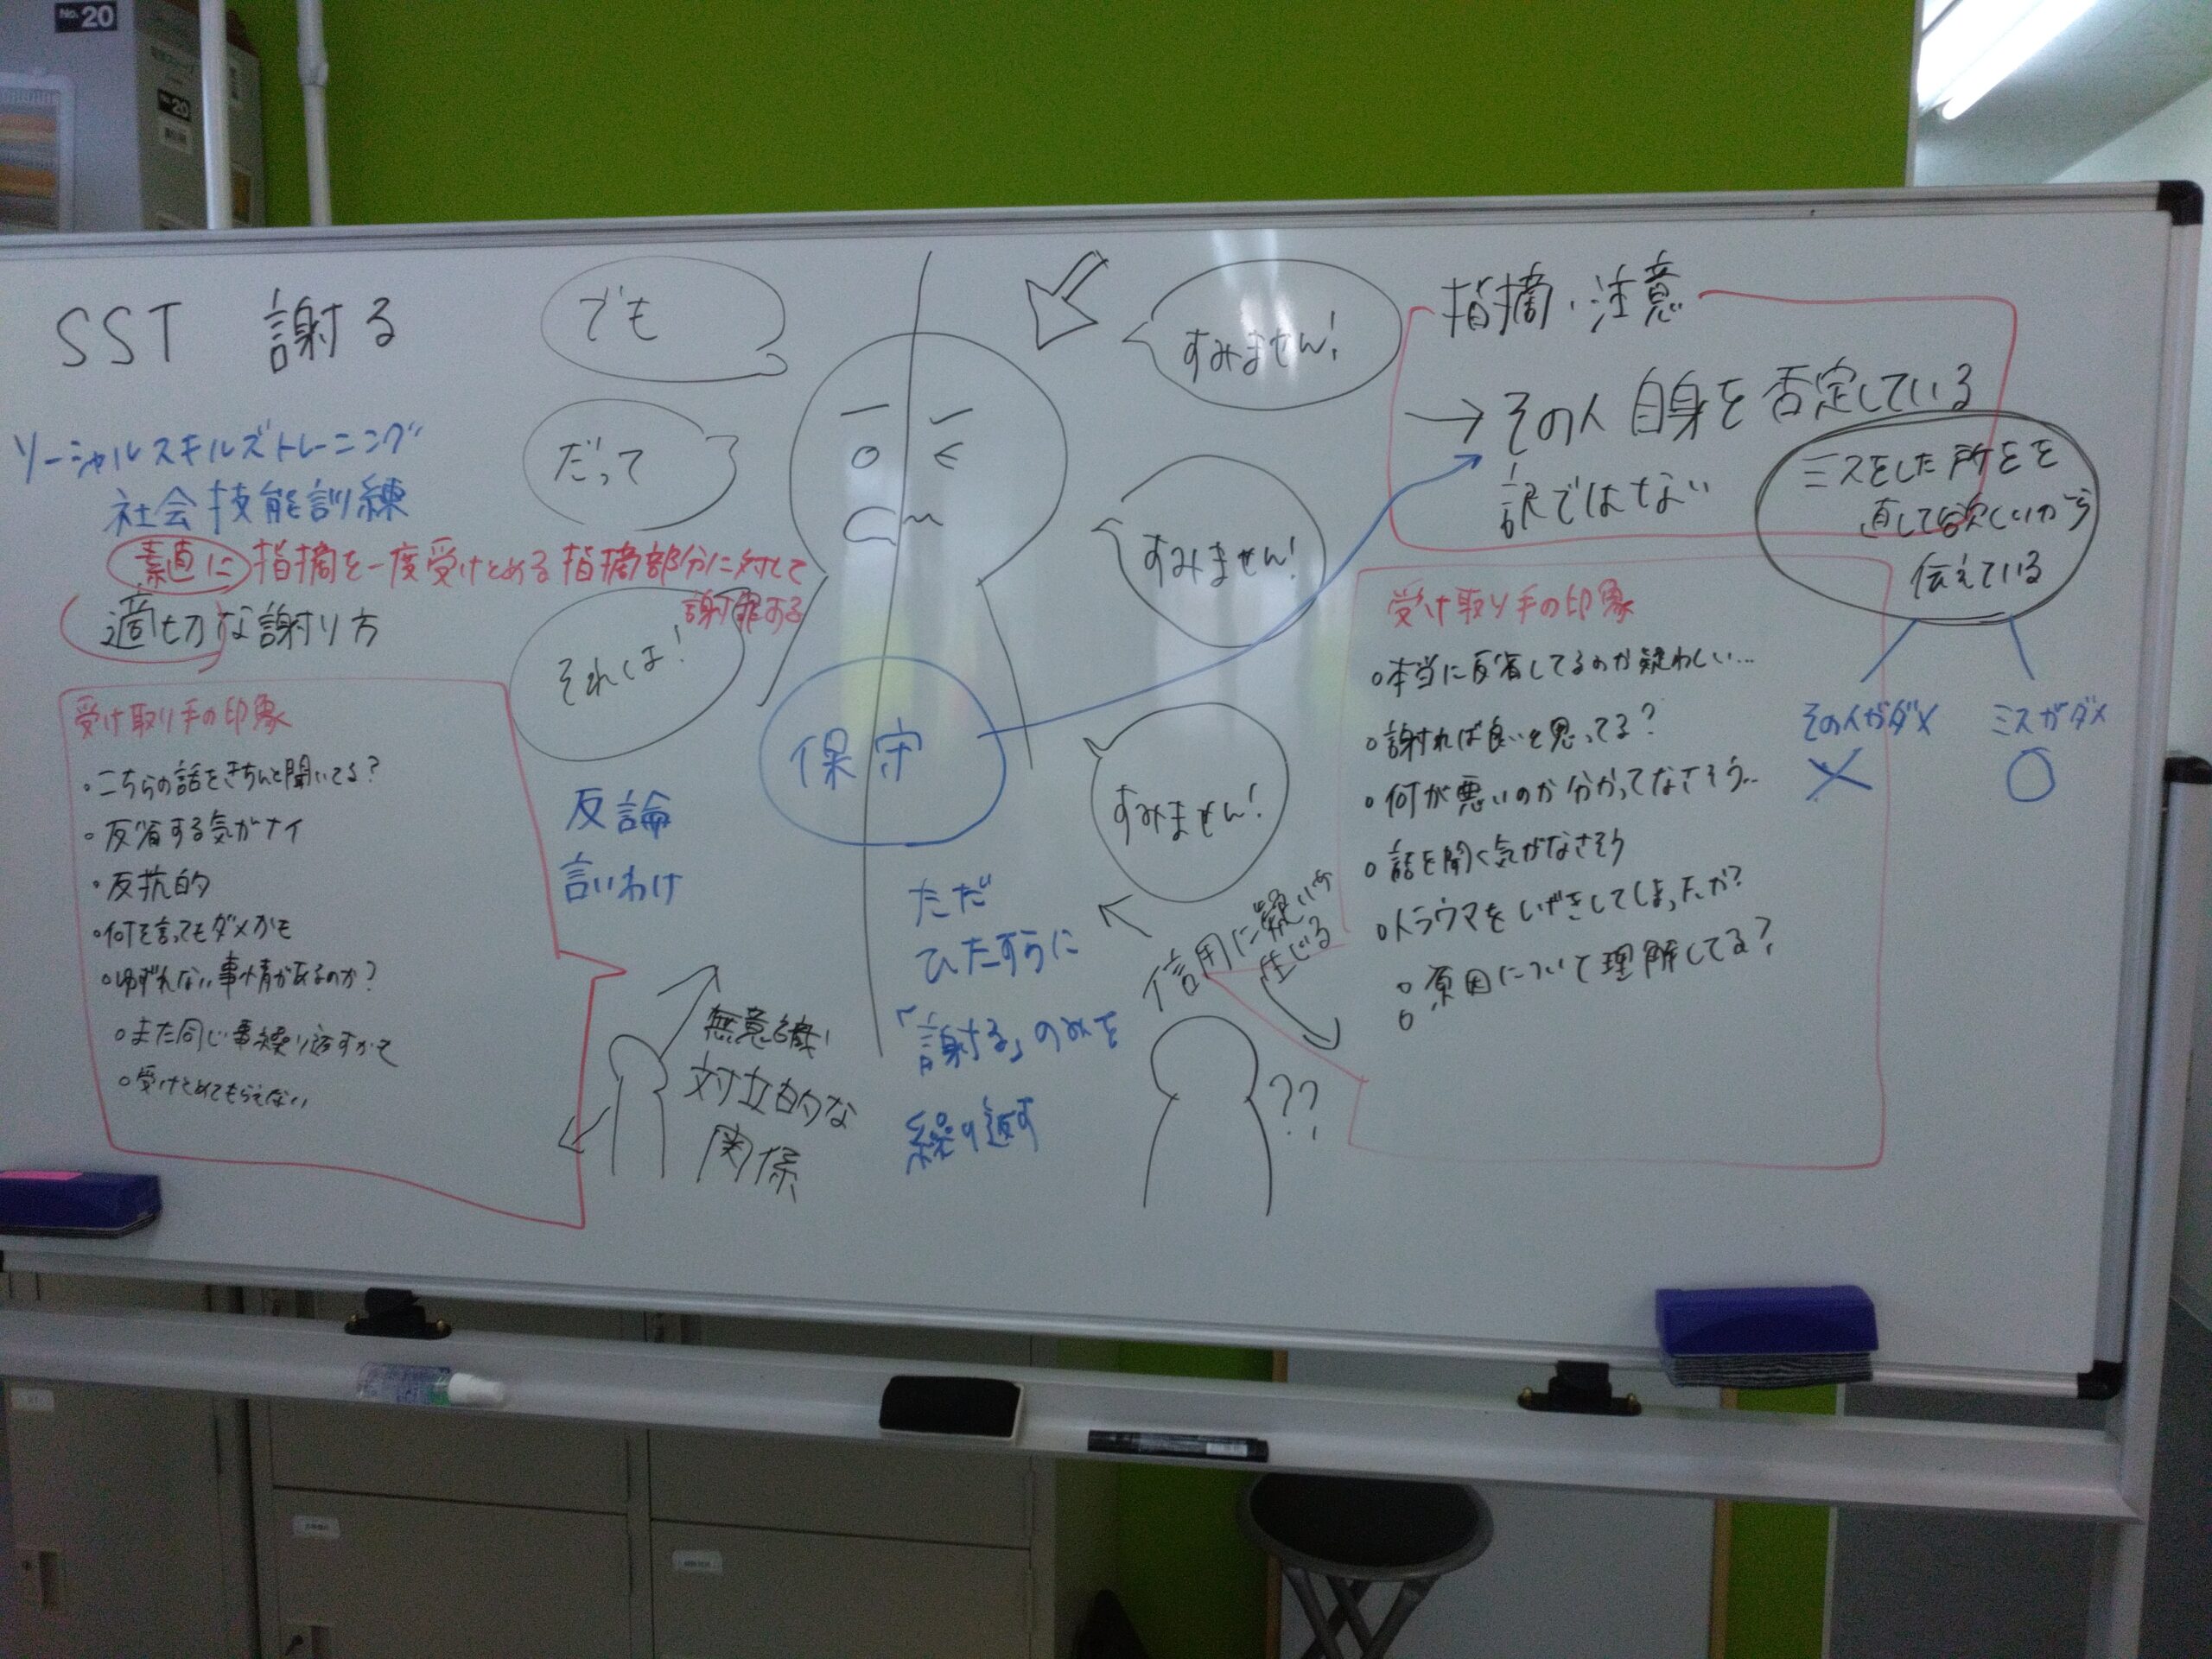 No. 20
No. 20
SST 謝る
ソーシャルスキルズトレーニング
社会技能訓練
素直に 指摘を一度受けとめる 指摘部分に対して
謝罪する
適切な謝り方
受け取り手の印象
・こちらの話をきちんと聞いてる?
・反省する気がナイ
・反抗的
・何を言ってもダメかも
・ゆずれない事情があるのか?
○また同じ事繰り返すかも
○受けとめてもらえない
でも
だって
それは!
反論
言いわけ
保守
無意識に
対立的な
関係
すみません!
すみません!
すみません!
ただ
ひたすらに
「謝る」のみを
繰り返す
信用に疑いが
生じる
??
指摘・注意
→その人自身を否定している
訳ではない
ミスをした所をを
直して欲しいから
伝えている
その人がダメ
×
ミスがダメ
○
受け取り手の印象
○本当に反省してるのか疑わしい…
○謝れば良いと思ってる?
○何が悪いのか分かってなさそう…
○話を聞く気がなさそう
○トラウマをしげきしてしまったか?
○原因について理解してる?
○